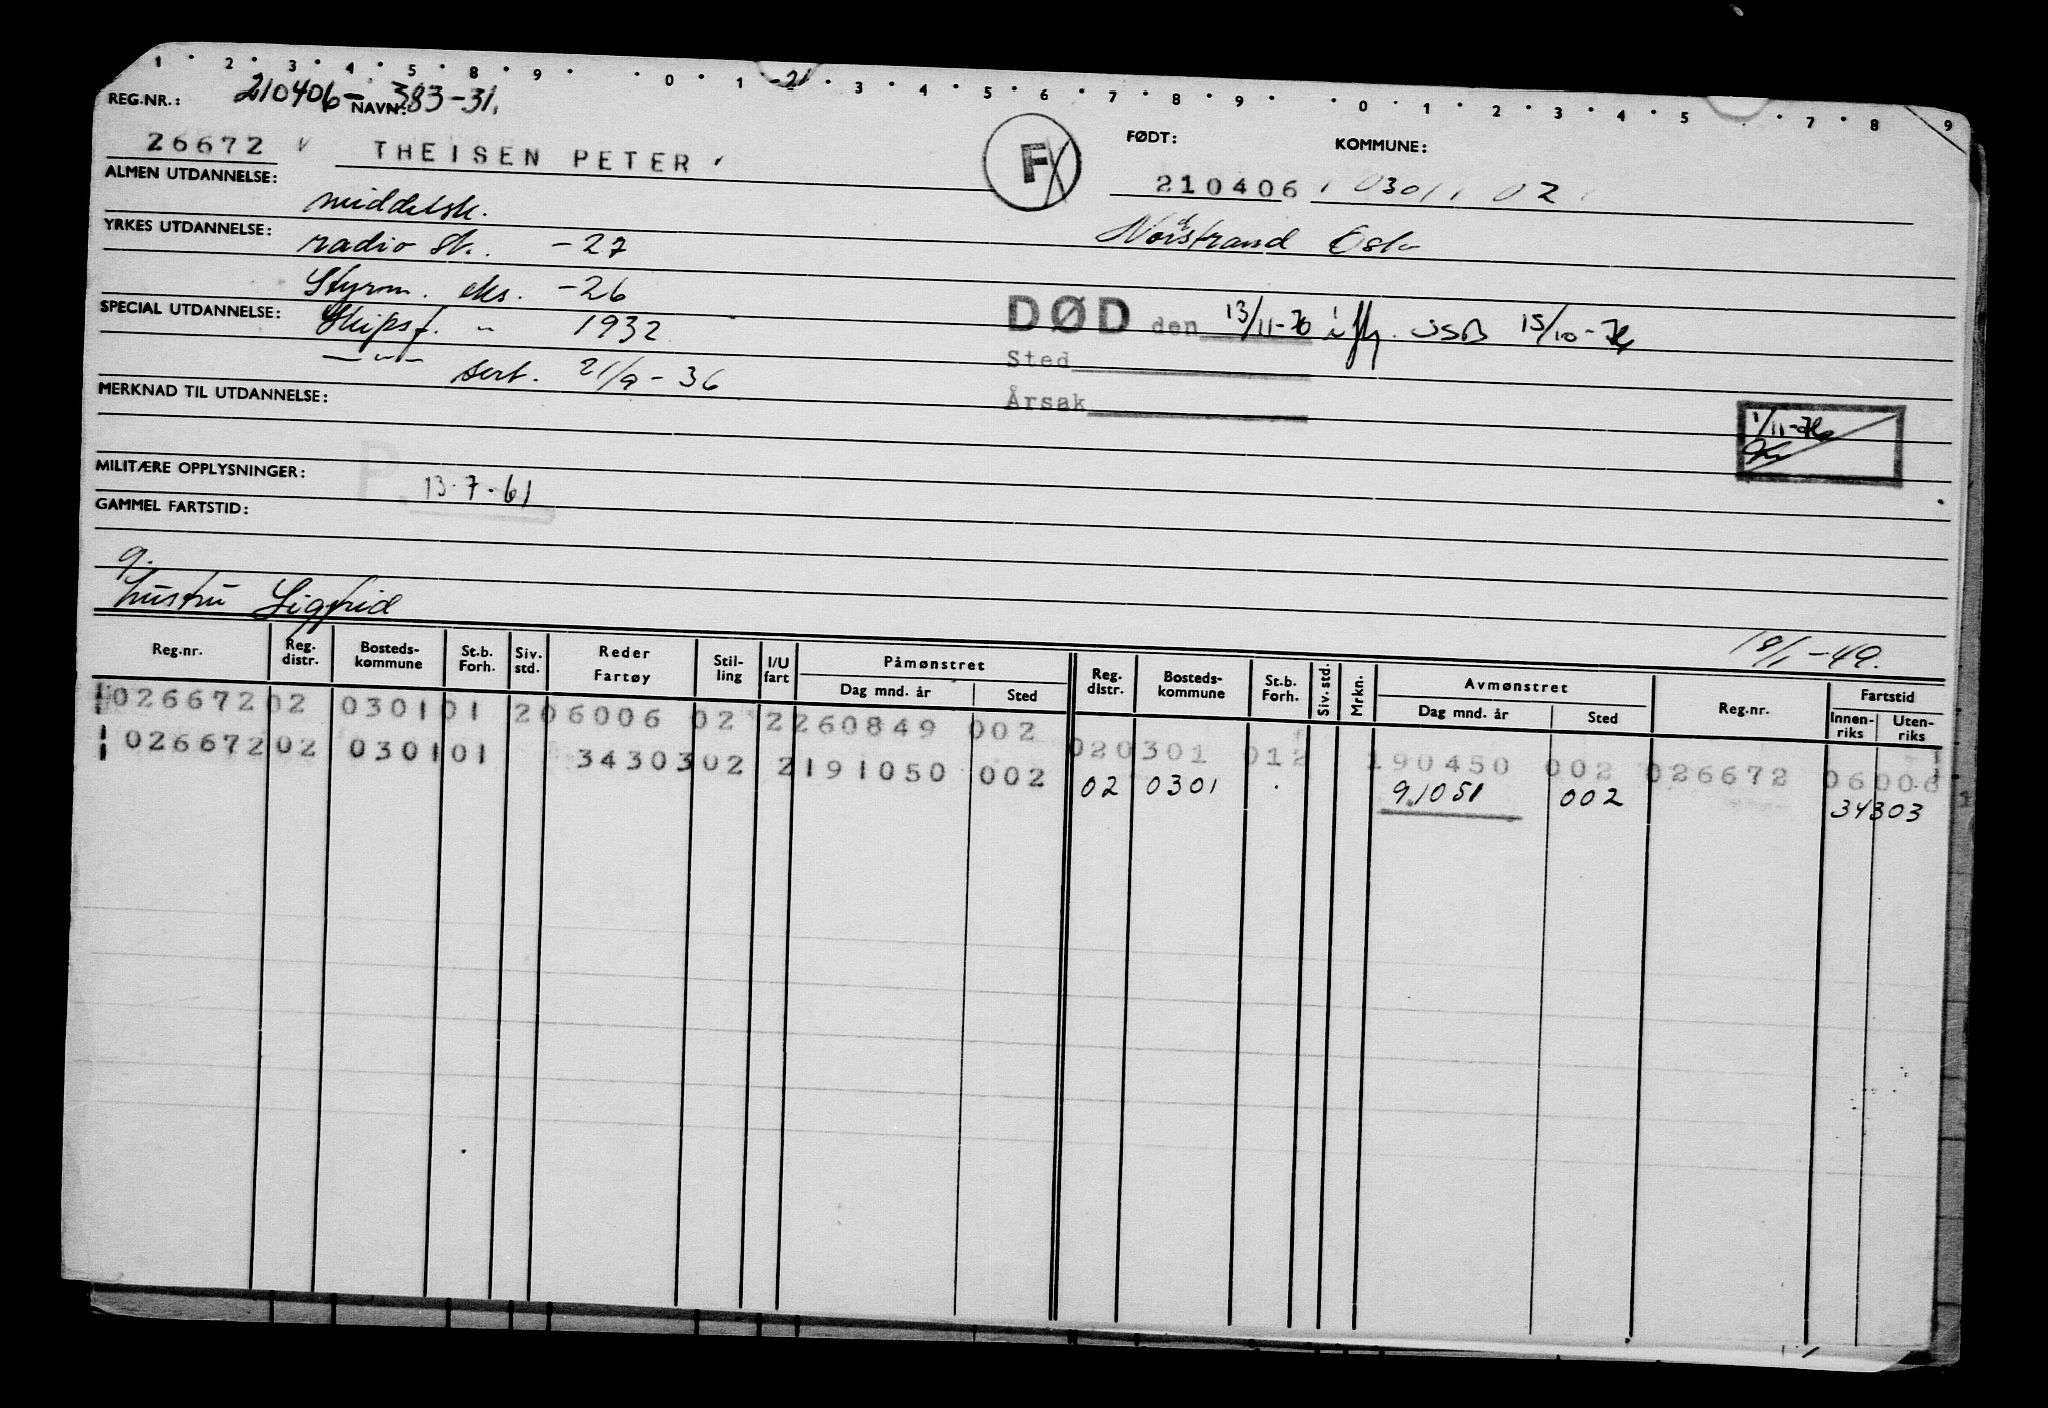 1 2 3 4 5 8 9 0 1 -21 3 4 5 6 7 8 9 0 1 2 3 4 5 7 8 9
REG.NR.: 210406-383-31. NAVN:
26672 V THEISEN PETER F FØDT: 210406 KOMMUNE: 0301 02
ALMEN UTDANNELSE: middelsk.
Nordstrand Oslo
YRKES UTDANNELSE: radio sk. -27
Styrm. eks. -26
SPECIAL UTDANNELSE: Skipsf. " 1932
DØD den 13/11-76 i flg. 15/10-76
— " — sert. 21/9-36
Sted
MERKNAD TIL UTDANNELSE:
Årsak
1/11-76
MILITÆRE OPPLYSNINGER: P. 13-7-61
GAMMEL FARTSTID:
g.
hustru Sigfrid
18/1-49.
Reg.nr. Reg. distr. Bosteds-kommune St.b. Forh. Siv. std. Reder Fartøy Stil-ling I/U fart Påmønstret Dag mnd. år Sted Reg. distr. Bosteds-kommune St.b. Forh. Siv. std. Mrkn. Avmønstret Dag mnd. år Sted Reg.nr. Fartstid Innen-riks Uten-riks
026672 02 0301 01 2 06006 02 2 260849 002 02 0301 012 190450 002 026672 06006
026672 02 0301 01 34303 02 2 191050 002 02 0301 91051 002 34303